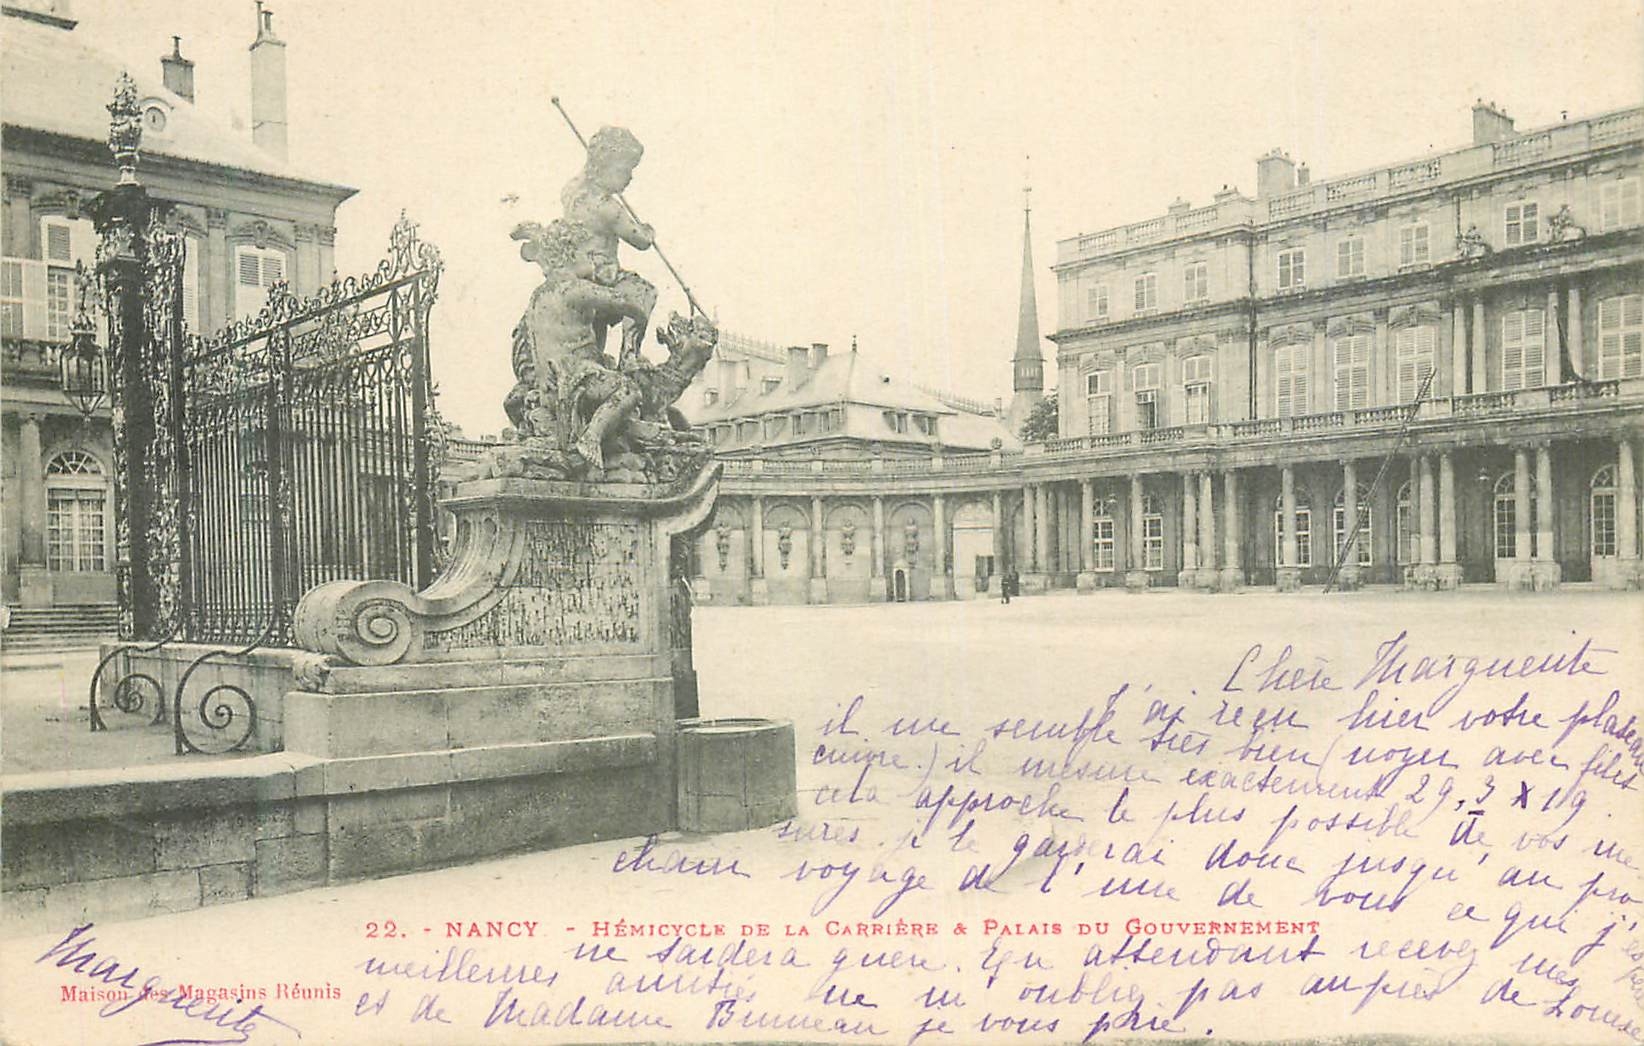 Chère Marguerite
J'ai reçu hier votre plateau
il me semble très bien (noyer avec filets
cuivre.) il mesure exactement 29,3 x 19
cela approche le plus possible de vos me
sures. je le garderai donc jusqu'au pro
chain voyage de l'une de vous ce qui j'espère
ne tardera guère. En attendant recevez mes
meilleures amitiés ne m'oubliez pas auprès de Louise
et de Madame Bruneau je vous prie.
Marguerite
22. - NANCY - HÉMICYCLE DE LA CARRIÈRE & PALAIS DU GOUVERNEMENT
Maison des Magasins Réunis